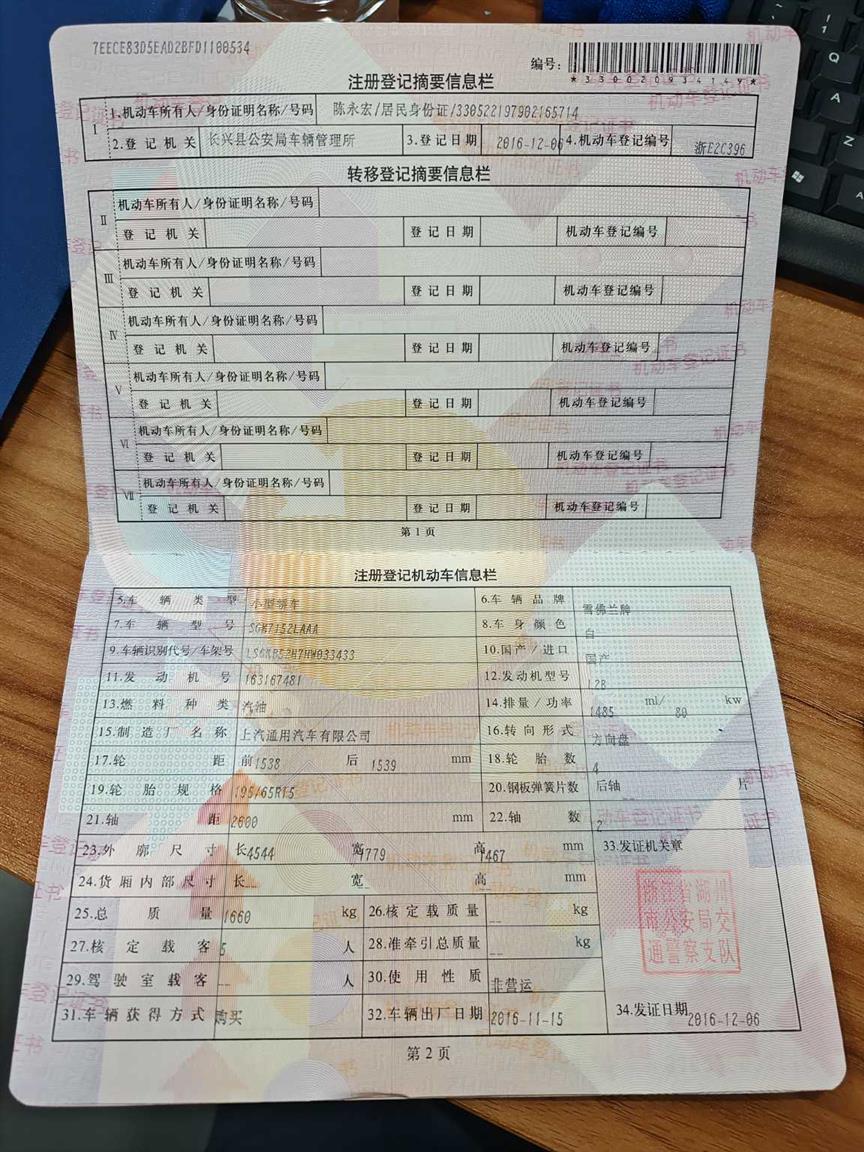 7EECE83D5EAD2BFD1100534
编号:
*330020934149*
注册登记摘要信息栏
I 1.机动车所有人/身份证明名称/号码 陈永宏/居民身份证/330522197902165714
2.登记机关 长兴县公安局车辆管理所 3.登记日期 2016-12-06 4.机动车登记编号 浙E2C396
转移登记摘要信息栏
II 机动车所有人/身份证明名称/号码
登记机关 登记日期 机动车登记编号
III 机动车所有人/身份证明名称/号码
登记机关 登记日期 机动车登记编号
IV 机动车所有人/身份证明名称/号码
登记机关 登记日期 机动车登记编号
V 机动车所有人/身份证明名称/号码
登记机关 登记日期 机动车登记编号
VI 机动车所有人/身份证明名称/号码
登记机关 登记日期 机动车登记编号
VII 机动车所有人/身份证明名称/号码
登记机关 登记日期 机动车登记编号
第1页
注册登记机动车信息栏
5.车辆类型 小型轿车 6.车辆品牌 雪佛兰牌
7.车辆型号 SGM7152LAAA 8.车身颜色 白
9.车辆识别代号/车架号 LSGKB52H7HW033433 10.国产/进口 国产
11.发动机号 163167481 12.发动机型号 L2B
13.燃料种类 汽油 14.排量/功率 1485 ml/ 80 kw
15.制造厂名称 上汽通用汽车有限公司 16.转向形式 方向盘
17.轮距 前1538 后 1539 mm 18.轮胎数 4
19.轮胎规格 195/65R15 20.钢板弹簧片数 后轴 -- 片
21.轴距 2600 mm 22.轴数 2
23.外廓尺寸 长4544 宽1779 高1467 mm 33.发证机关章
24.货厢内部尺寸 长-- 宽-- 高-- mm
25.总质量 1660 kg 26.核定载质量 -- kg
27.核定载客 5 人 28.准牵引总质量 -- kg
29.驾驶室载客 -- 人 30.使用性质 非营运
31.车辆获得方式 购买 32.车辆出厂日期 2016-11-15 34.发证日期 2016-12-06
浙江省湖州
市公安局交
通警察支队
第2页